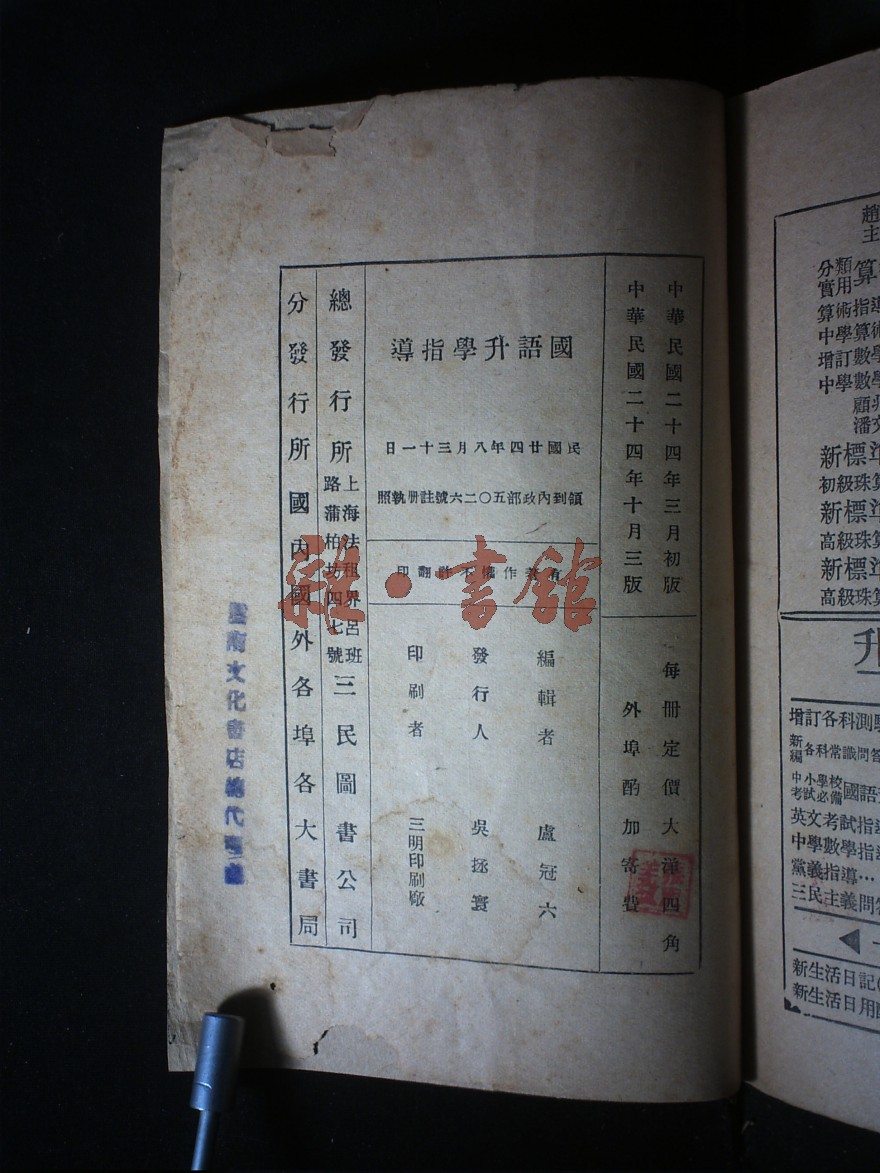 中華民國二十四年三月初版
中華民國二十四年十月三版
每冊定價大洋四角
外埠酌加寄費
國語升學指導
民國廿四年八月三十一日
領到內政部五〇二六號註冊執照
有著作權不許翻印
編輯者 盧冠六
發行人 吳拯寰
印刷者 三明印刷廠
總發行所 上海法租界呂班路蒲柏坊四七號 三民圖書公司
分發行所 國內國外各埠各大書局
文化書店總代
雜·書館
趙
主
分類實用算
算術指
中學算術
增訂數學
中學數學
顧
潘
新標準
初級珠算
新標準
高級珠算
新標準
高級珠算
升
增訂各科測
新編各科常識問答
中小學校考試必備國語
英文考試指
中學數學指
黨義指導…
三民主義問
新生活日記
新生活日用